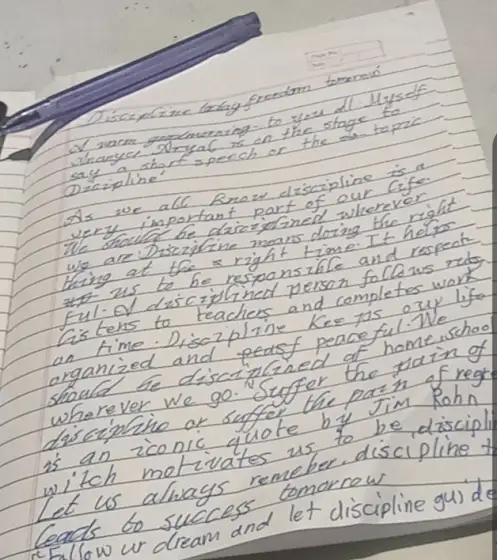 Discipline today freedom tomorrow
A warm goodmorning to you all. Myself
Aryal is on the stage to
say a short speech or the topic
Discipline'
As we all Know discipline is a
very important part of our life.
We should be disciplined wherever
we are. Discipline means doing the right
thing at the right time. It helps
us to be responsible and respect
ful. A disciplined person follows rules
listens to teachers and completes work
on time. Discipline Keeps our life
organized and peaceful. We
should be disciplined at home, school
wherever we go. "Suffer the pain of
discipline or suffer the pain of regre
is an iconic quote by Jim Rohn
witch motivates us to be discipli
Let us always remeber, discipline t
leads to success tomorrow
Fallow ur dream and let discipline guide